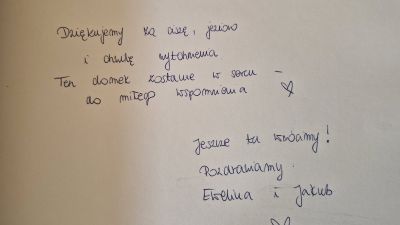 Dziękujemy za ciszę, jezioro
i chwilę wytchnienia
Ten domek zostanie w sercu –
do miłego wspomnienia
Jeszcze tu wrócimy!
Pozdrawiamy
Ewelina i Jakub